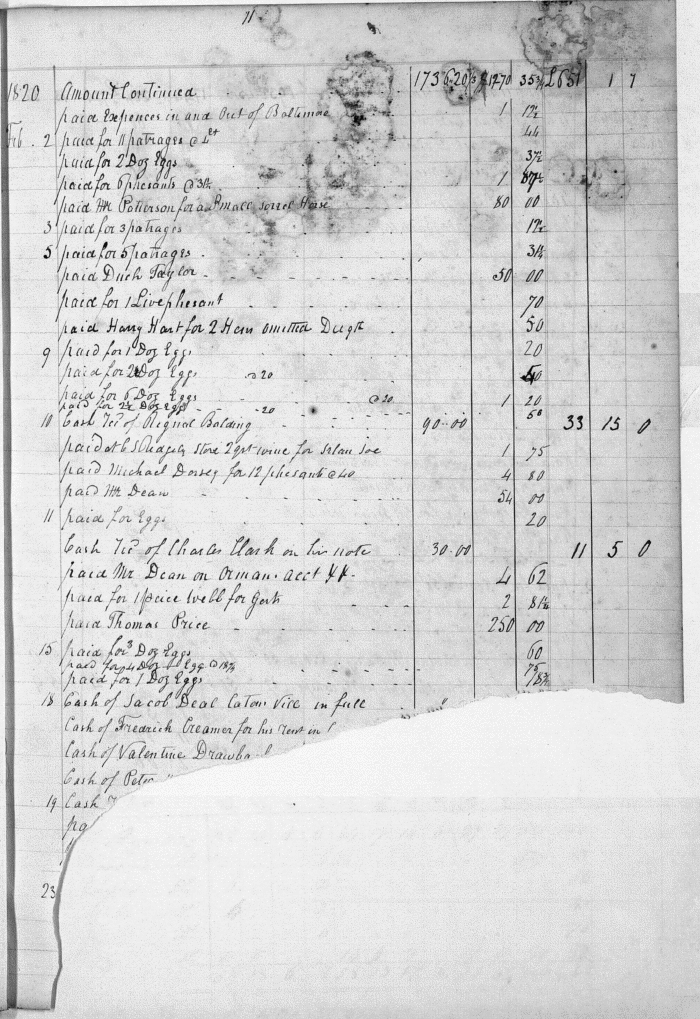 71
1820 Amount Continued 1736 20 1270 35¾ £651 1 7
paid Expences in and Out of Baltimore 1 12½
Feb. 2 paid for 11 patrages @ 4ct 44
paid for 2 Doz Eggs 37½
paid for 6 phesants @ 31¼ 1 87½
paid Mr Patterson for a Small sorrel Horse 80 00
3 paid for 3 patrages
5 paid for 5 patrages 31¼
paid Duch Taylor 50 00
paid for 1 Live phesant 70
paid Harry Hart for 2 Hens omitted 50
9 paid for 1 Doz Eggs 20
paid for 2 Doz Eggs @ 20 40
paid for 6 Doz Eggs @ 20 1 20
paid for 2½ Doz Eggs 20 50
10 Cash Recd of Rignal Balding 90.00 33 15 0
paid at store 2 qrt wine for 1 75
paid Michael Dorsey for 12 phesants @ 40 4 80
paid Mr Dean 54 00
11 paid for Eggs 20
Cash Recd of Charles Clark on his note 30.00 11 5 0
paid Mr Dean on acct 4 62
paid for 1 peice Webb for 2 81¼
paid Thomas Price 250 00
15 paid for 3 Doz Eggs 60
paid for 4 Doz Egg @ 18¾ 75
paid for 1 Doz Eggs 18¾
18 Cash of Jacob Deal Catons Vice in full
Cash of Fredrick Creamer for his rent in
Cash of Valentine
Cash of
19 Cash
23